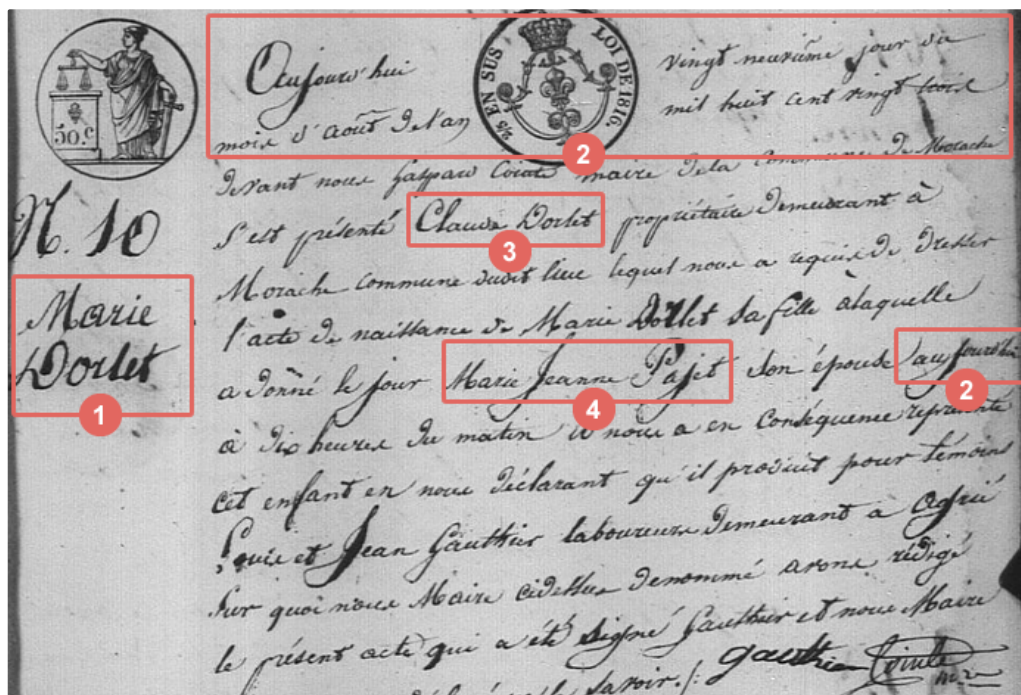 Aujourd'hui vingt neuvième jour du
mois d'Août de l'an mil huit cent vingt trois
devant nous Gaspard maire de la commune de Morache
s'est présenté Claude Dorlet propriétaire demeurant à
Morache commune dudit lieu lequel nous a requis de dresser
l'acte de naissance de Marie Dorlet sa fille a laquelle
a donné le jour Marie Jeanne Pajet son épouse aujourd'hui
à dix heures du matin et nous a en conséquence représenté
cet enfant en nous déclarant qu'il produit pour témoins
Louis et Jean Gauthier laboureurs demeurant a Agrié
sur quoi nous Maire cidessus denommé avons rédigé
le présent acte qui a été signé Gauthier et nous Maire
savoir ./. gauthier
50 c.
2/5 EN SUS
LOI DE 1816.
N. 10
Marie
Dorlet
1
2
3
4
2